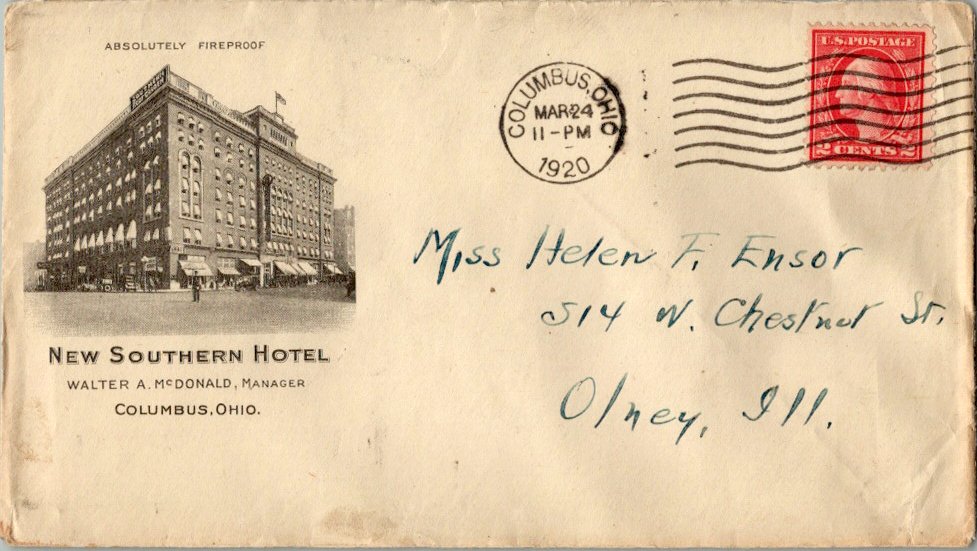 ABSOLUTELY FIREPROOF
NEW SOUTHERN HOTEL
WALTER A. McDONALD, MANAGER
COLUMBUS, OHIO.
COLUMBUS, OHIO
MAR 24
11-PM
1920
U.S. POSTAGE
2 CENTS 2
Miss Helen F. Ensor
514 N. Chestnut St.
Olney, Ill.